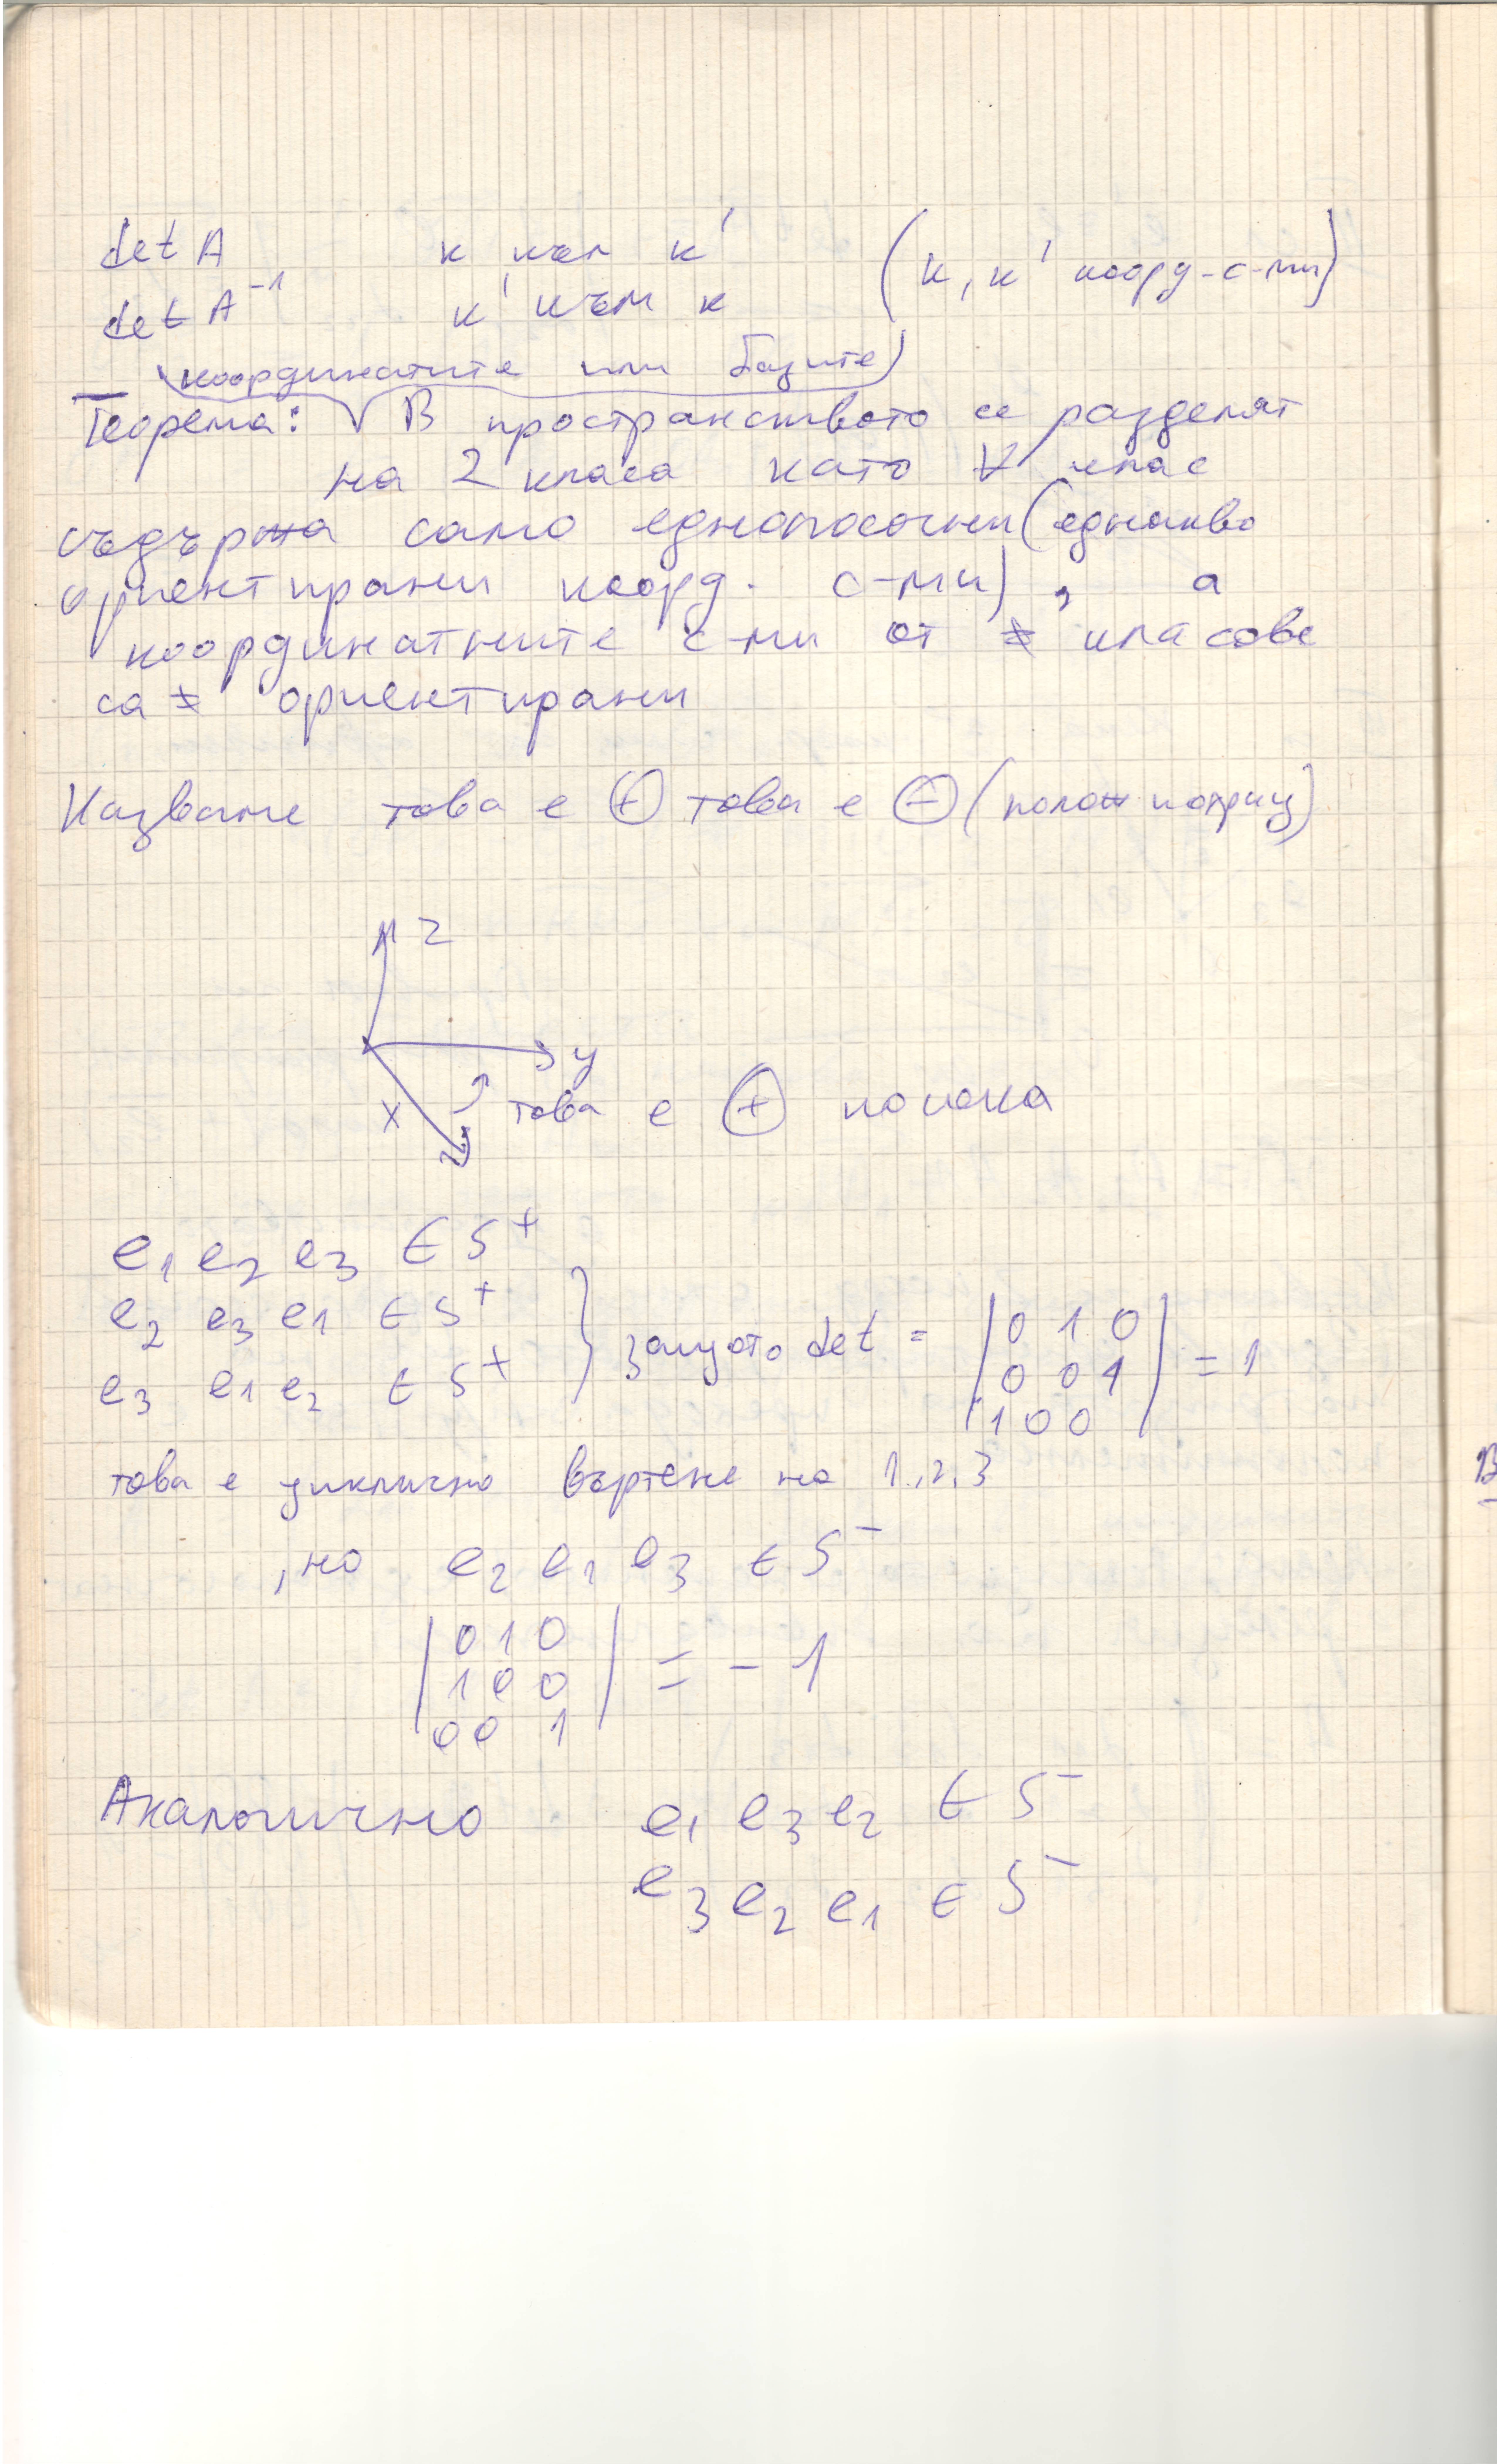 det A к към к' (к, к' коорд-с-ми)
det A⁻¹ к' към к
координатите или базите
Теорема: √ В пространството се разделят
на 2 класа като ∀ клас
съдържа само еднопосочни (еднакво
ориентирани коорд. с-ми), а
координатните с-ми от ≠ класове
са ≠ ориентирани
Казваме това е ⊕ това е ⊖ (полож и отриц)
z
y
x това е ⊕ посока
e₁ e₂ e₃ ∈ S⁺
e₂ e₃ e₁ ∈ S⁺
e₃ e₁ e₂ ∈ S⁺ } защото det = |0 1 0
0 0 1
1 0 0| = 1
това е циклично въртене на 1,2,3
, но e₂ e₁ e₃ ∈ S⁻
|0 1 0
1 0 0
0 0 1| = - 1
Аналогично e₁ e₃ e₂ ∈ S⁻
e₃ e₂ e₁ ∈ S⁻
В